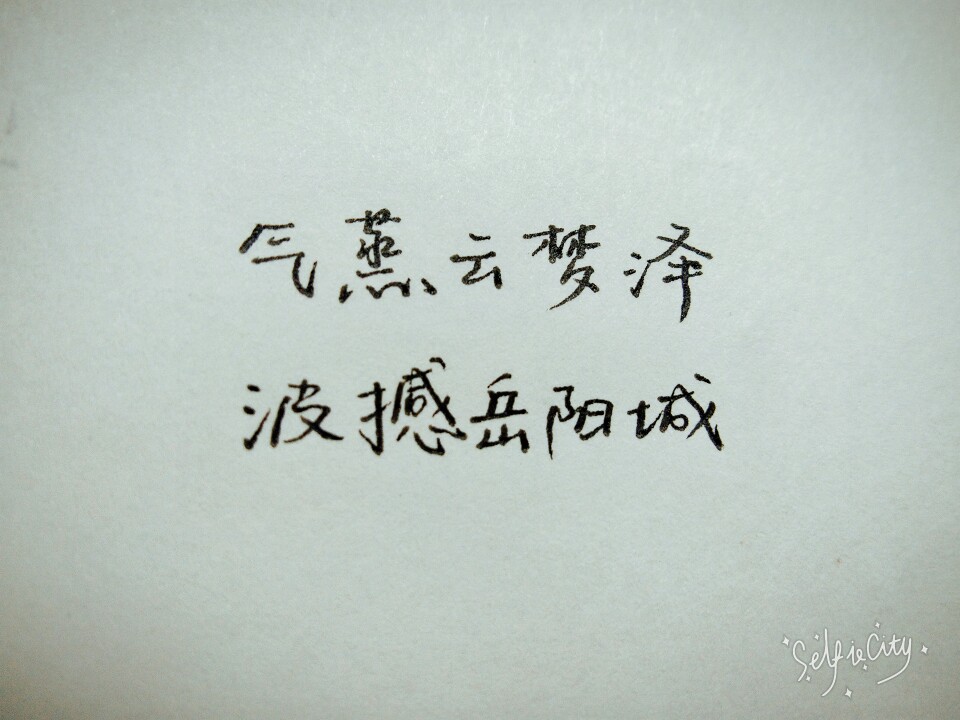 气蒸云梦泽
波撼岳阳城
SelfieCity